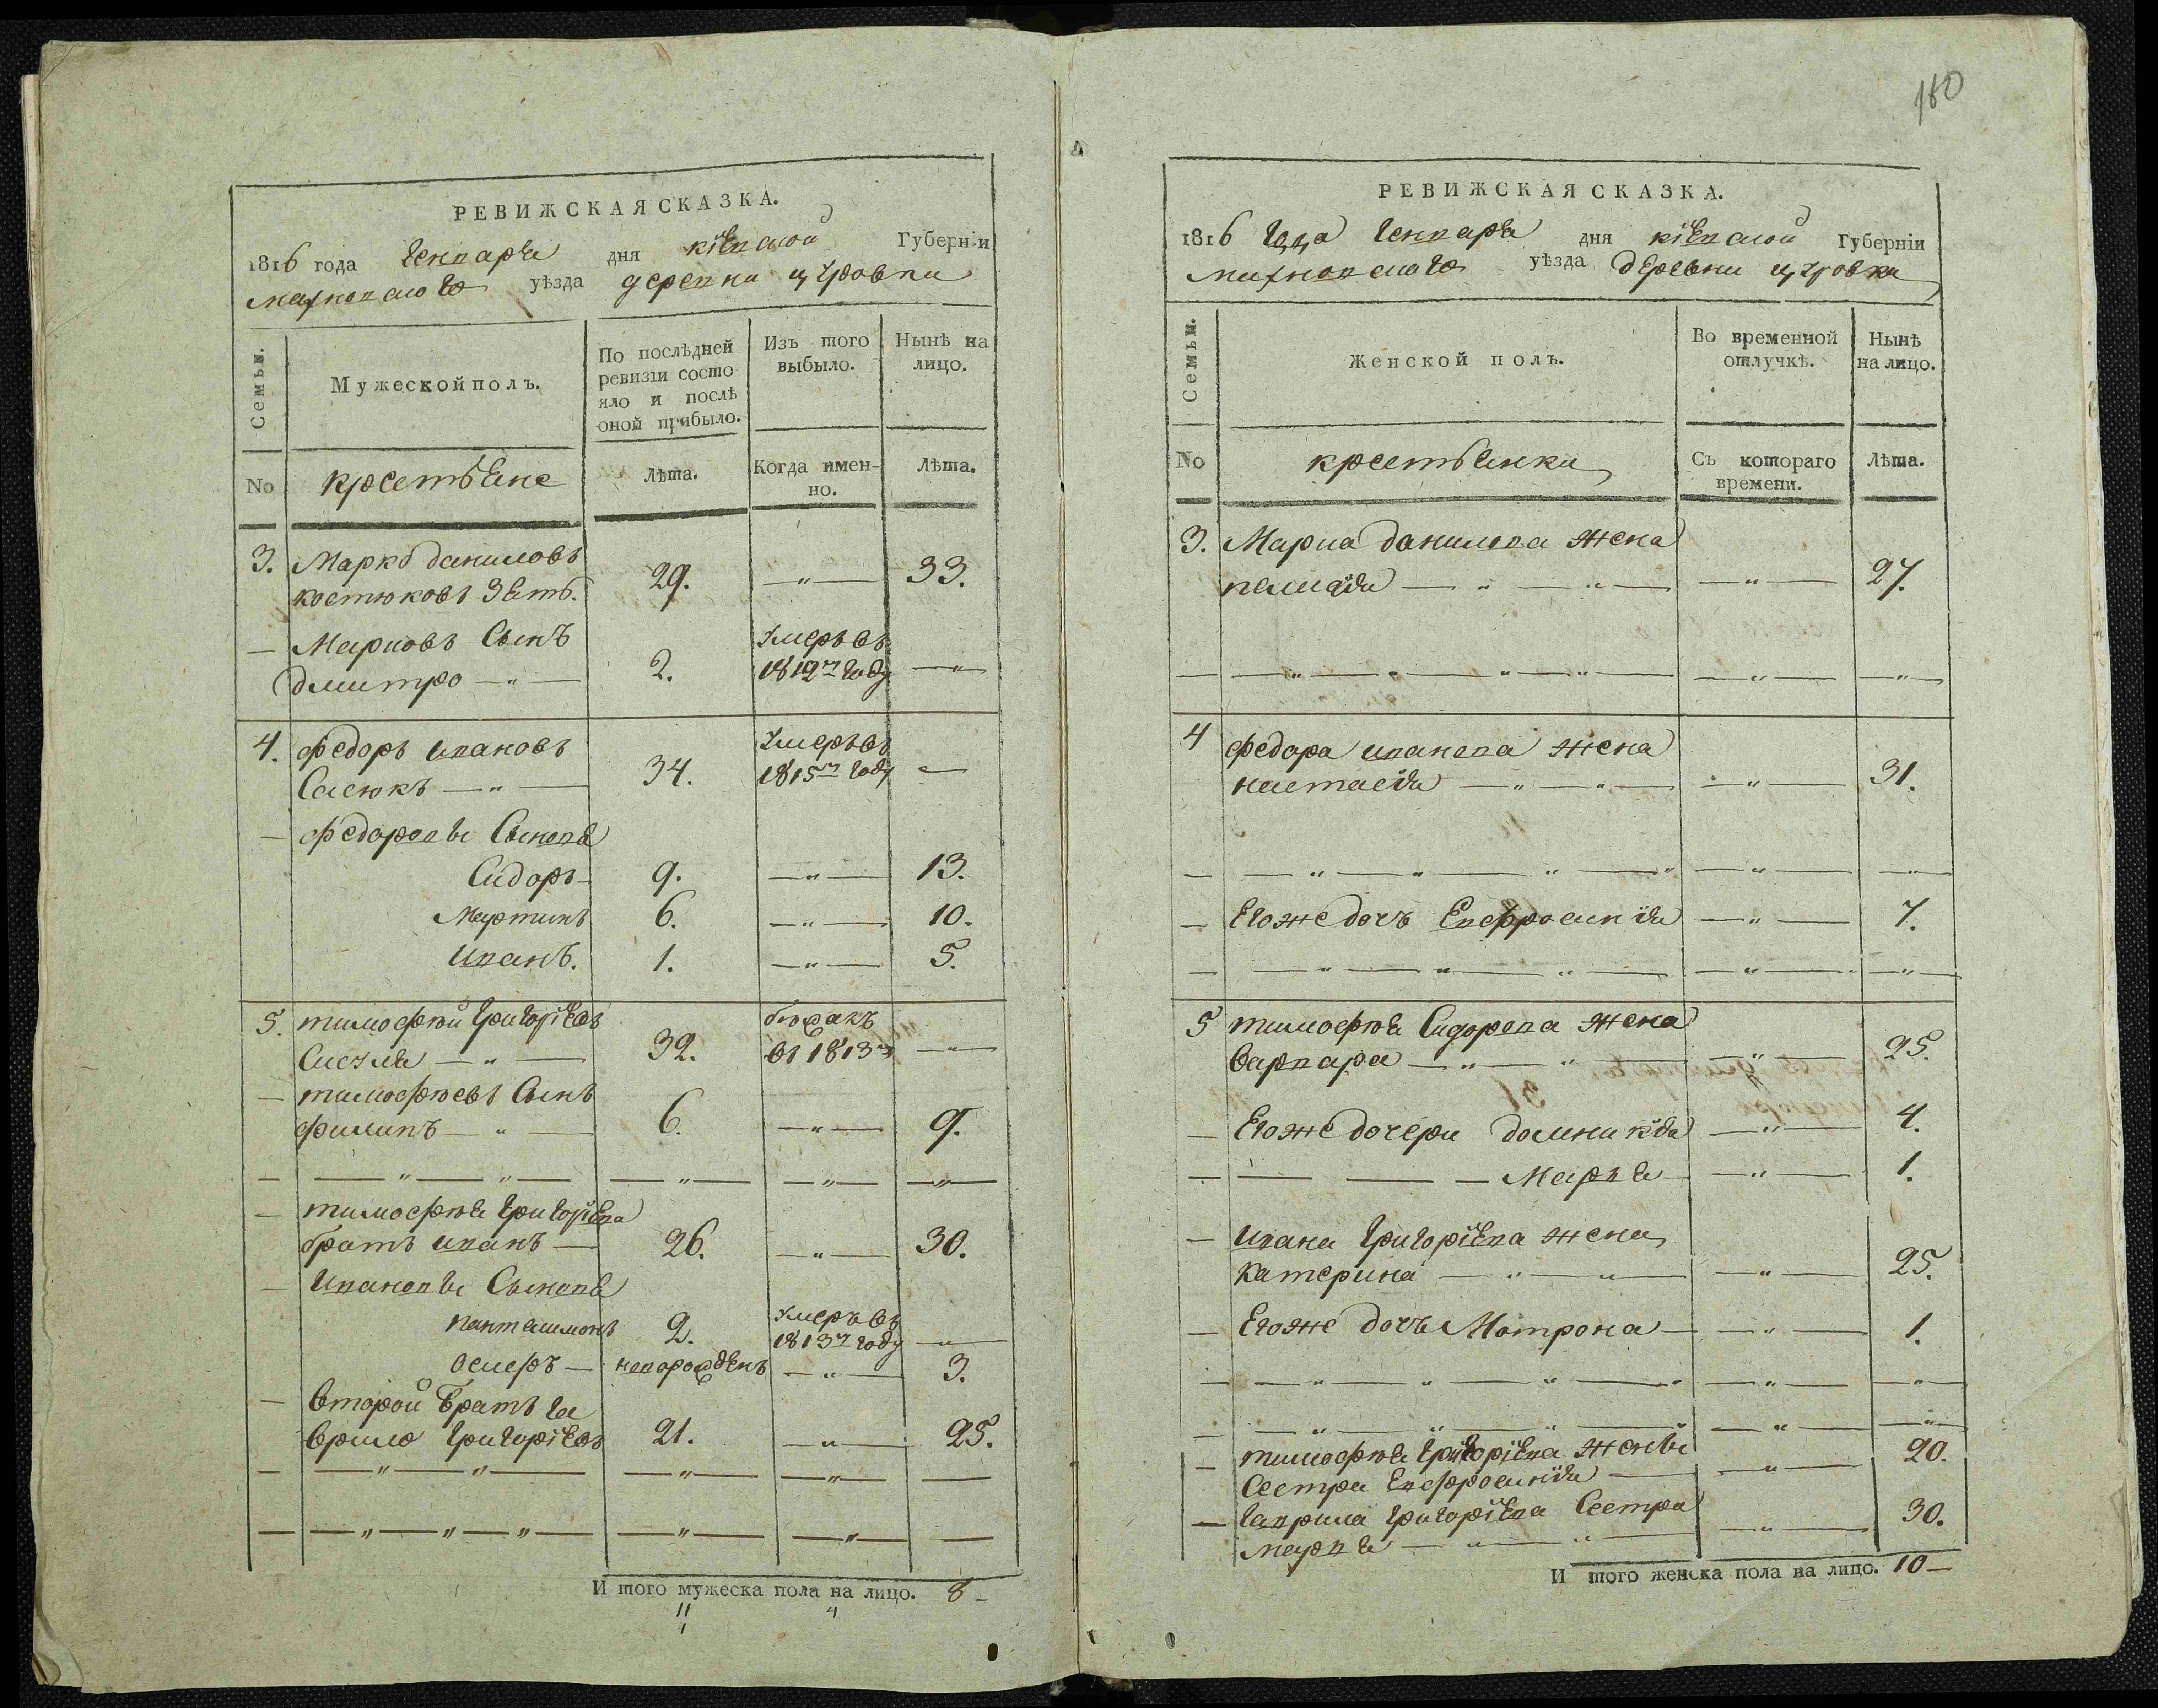 РЕВИЖСКАЯ СКАЗКА.
1816 года Генваря дня кіевской Губерніи
махновского уѣзда деревни щуровки
Семьи.
Мужеской полъ.
По послѣдней
ревизіи состо
яло и послѣ
оной прибыло.
Изъ того
выбыло.
Нынѣ на
лицо.
No крестьяне Лѣта. Когда имен-
но. Лѣта.
3. Марко даниловъ
костюковъ зять. 29. —„— 33.
— Марковъ Сынъ Умеръ въ
дмитро —„— 2. 1812м году —„
4. федоръ ивановъ Умеръ въ
Саcюкъ —„— 34. 1815м году —
— федоровы Сыновя
Сидоръ— 9. —„— 13.
Мартинъ 6. —„— 10.
иванъ. 1. —„— 5.
5. тимофѣй григоріевъ бѣжалъ
—„— 32. въ 1813м —„—
— тимофѣевъ Сынъ
филипъ —„— 6. —„— 9.
— —„—„— —„— —„— —„—
— тимофѣя григоріева
братъ иванъ — 26. —„— 30.
— Ивановы Сыновя
пантелимонъ 2. Умеръ въ
1813м году —„—
осифъ — новорожденъ —„— 3.
— второй братъ га
врило григоріевъ 21. —„— 25.
— —„—„— —„— —„— —
— —„—„—„— —„— —„— —
И того мужеска пола на лицо. 8 –
180
РЕВИЖСКАЯ СКАЗКА.
1816 года Генваря дня кіевской Губерніи
махновского уѣзда деревни щуровки
Семьи.
Женской полъ.
Во временной
отлучкѣ.
Нынѣ
на лицо.
No крестьянки Съ котораго
времени. Лѣта.
3. Марка данилова жена
пелагія —„—„— —„— 27.
— —„—„—„—„— —„— —„—
4 федора иванова жена
настасія —„—„— —„— 31.
— —„—„—„—„ —„— —„—
— Егоже дочъ Евфросинія —„— 7.
— —„—„—„— —„— —„—
5 тимофѣя Сидорова жена
варвара —„—„— —„— 25.
— Егоже дочери домникія —„— 4.
— — — — Марья —„— 1.
— Ивана григоріева жена
катерина —„—„— —„— 25.
— Егоже дочъ Мотрона — —„— 1.
— —„—„—„—„ —„— —„—
— —„—„—„—„ —„— —„—
— тимофѣя григоріева жены 20.
Сестра Евфросинія — —„—
— гаврила григоріева Сестра 30.
марья —„—„— —„—
И того женска пола на лицо. 10 —